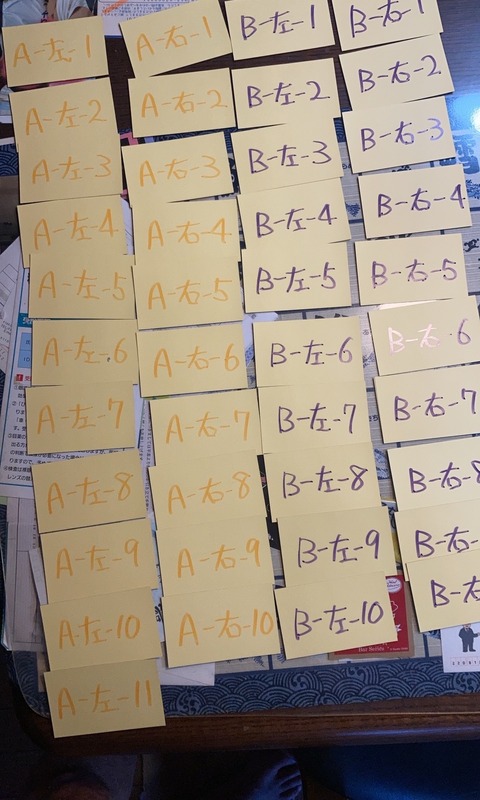 A-左-1
A-左-2
A-左-3
A-左-4
A-左-5
A-左-6
A-左-7
A-左-8
A-左-9
A-左-10
A-左-11
A-右-1
A-右-2
A-右-3
A-右-4
A-右-5
A-右-6
A-右-7
A-右-8
A-右-9
A-右-10
B-左-1
B-左-2
B-左-3
B-左-4
B-左-5
B-左-6
B-左-7
B-左-8
B-左-9
B-左-10
B-右-1
B-右-2
B-右-3
B-右-4
B-右-5
B-右-6
B-右-7
B-右-8
B-右-
B-右